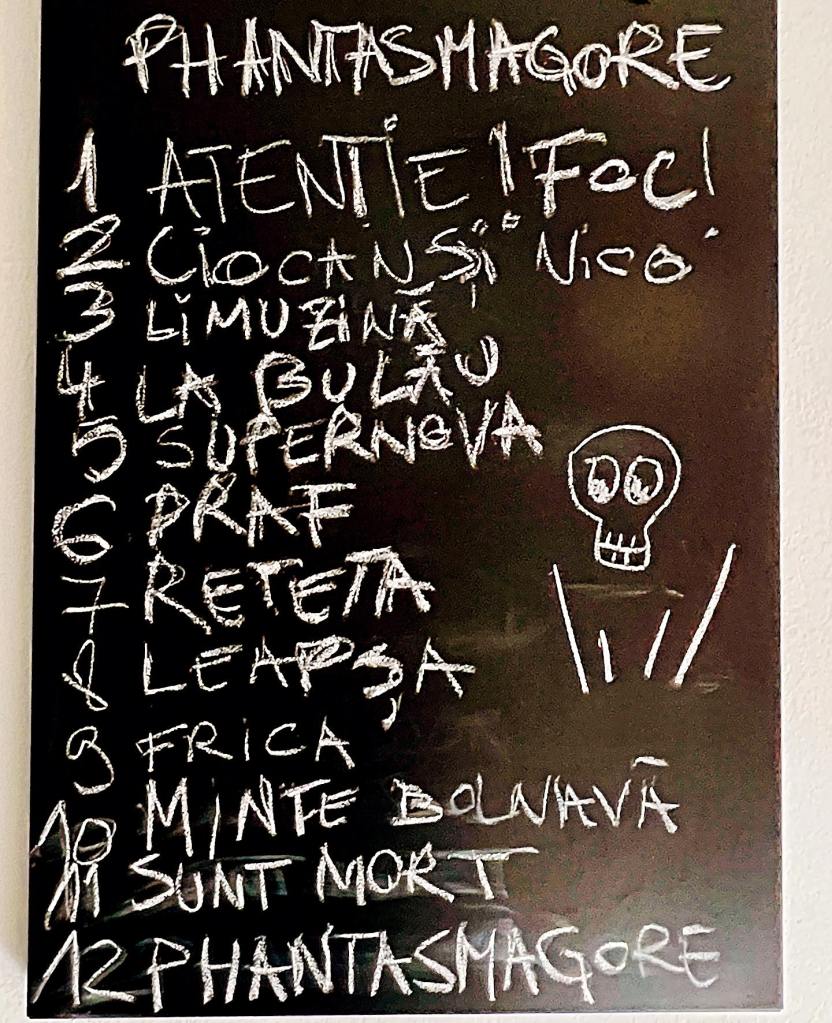 PHANTASMAGORE
1 ATENTIE ! FOC!
2 CIOCAN ȘI NICO
3 LIMUZINĂ
4 LA BULĂU
5 SUPERNOVA
6 PRAF
7 RETETA
8 LEAPȘA
9 FRICA
10 MINTE BOLNAVĂ
11 SUNT MORT
12 PHANTASMAGORE